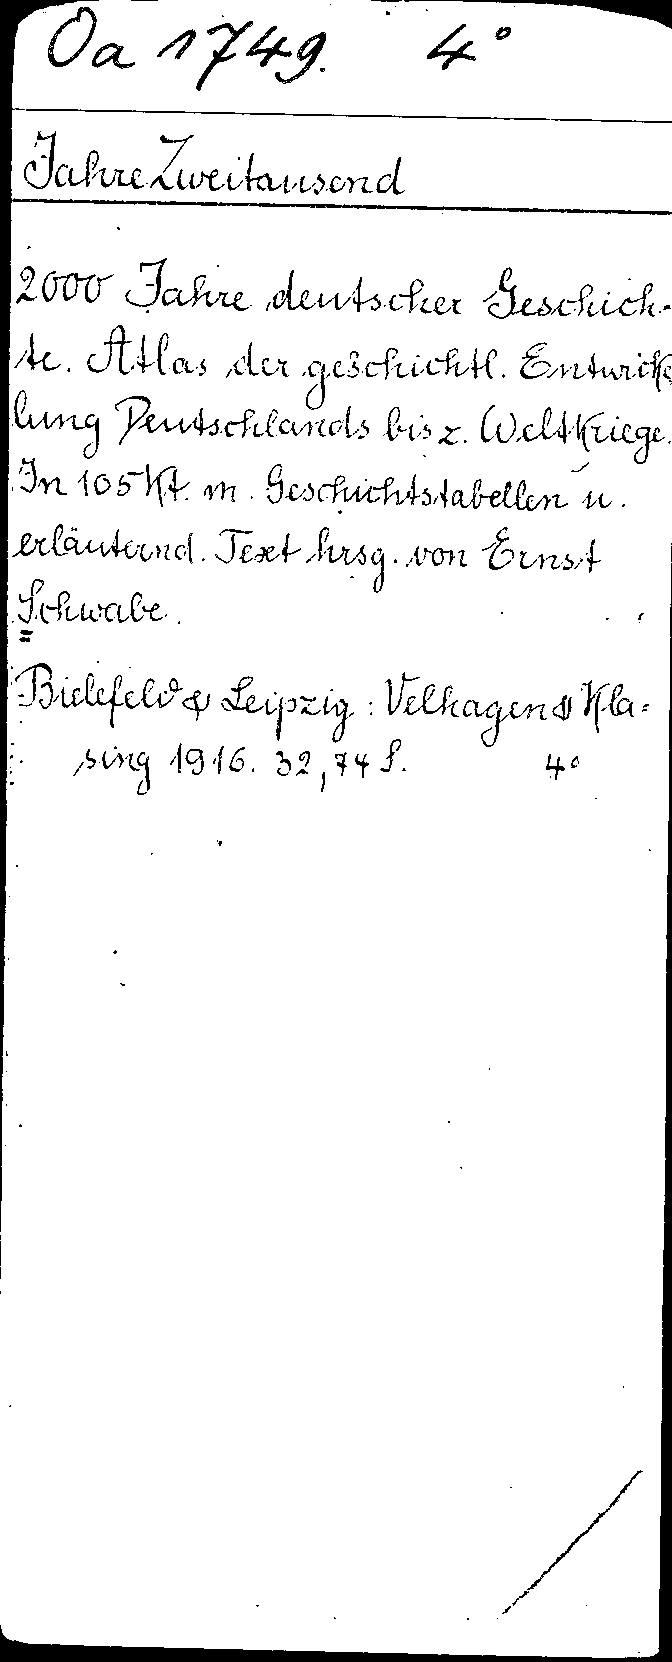 Oa 1749. 4°
Jahre Zweitausend
2000 Jahre deutscher Geschich-
te. Atlas der geschichtl. Entwick
lung Deutschlands bis z. Weltkriege.
In 105 Kt. m. Geschichtstabellen u.
erläuternd. Text hrsg. von Ernst
Schwabe.
Bielefeld & Leipzig: Velhagen & Kla-
sing 1916. 32, 74 S. 4°